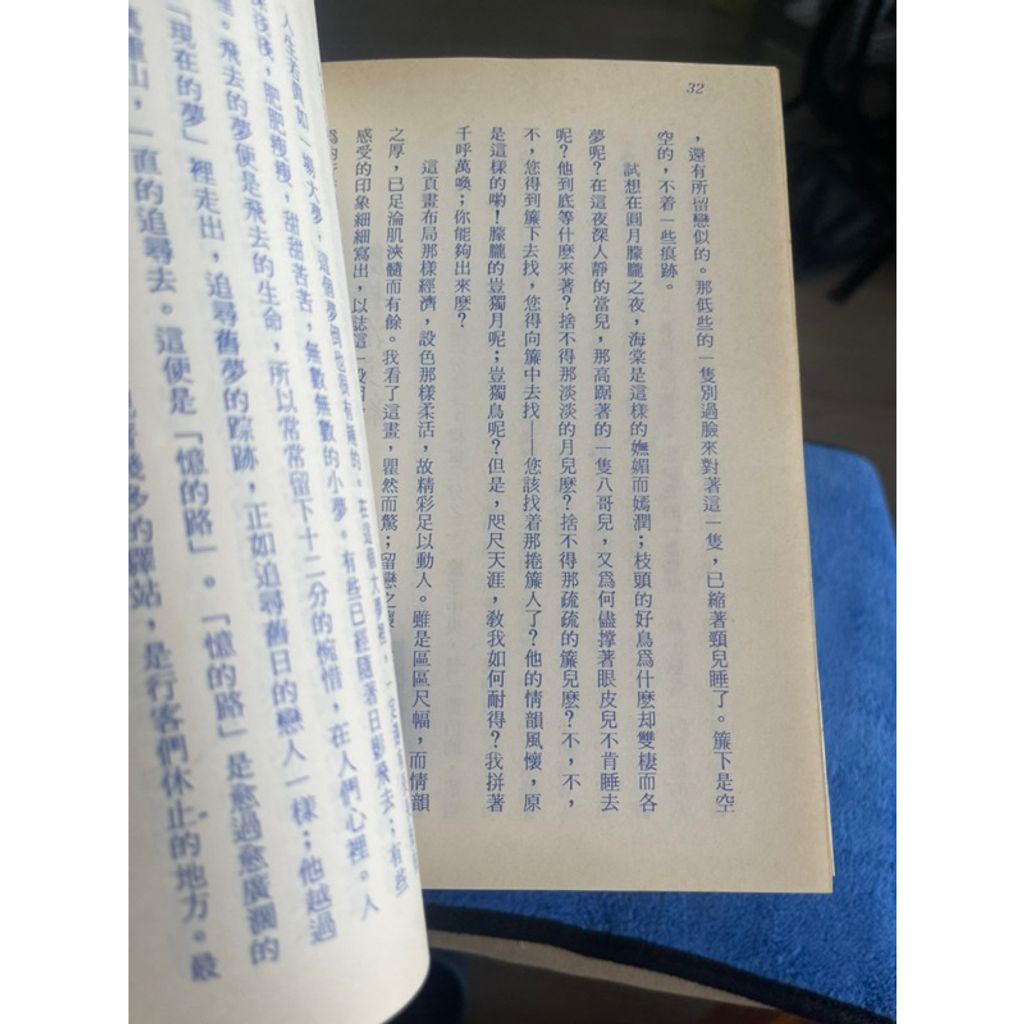 32
，還有所留戀似的。那低些的一隻別過臉來對著這一隻，已縮著頸兒睡了。簾下是空
空的，不着一些痕跡。
試想在圓月朦朧之夜，海棠是這樣的嫵媚而嫣潤；枝頭的好鳥爲什麽却雙棲而各
夢呢？在這夜深人靜的當兒，那高踞著的一隻八哥兒，又爲何儘撐著眼皮兒不肯睡去
呢？他到底等什麽來著？捨不得那淡淡的月兒麽？捨不得那疏疏的簾兒麽？不，不，
不，您得到簾下去找，您得向簾中去找——您該找着那捲簾人了？他的情韻風懷，原
是這樣的喲！朦朧的豈獨月呢；豈獨鳥呢？但是，咫尺天涯，教我如何耐得？我拼著
千呼萬喚；你能夠出來麽？
這頁畫布局那樣經濟，設色那樣柔活，故精彩足以動人。雖是區區尺幅，而情韻
之厚，已足淪肌浹髓而有餘。我看了這畫，瞿然而驚；留戀之懷
感受的印象細細寫出，以誌這一段
人生若真如一場大夢，這個夢
，肥肥瘦瘦，甜甜苦苦，無數無數的小夢。有些已經隨著日影飛去；有些
。飛去的夢便是飛去的生命，所以常常留下十二分的惋惜，在人們心裡。人
「現在的夢」裡走出，追尋舊夢的踪跡，正如追尋舊日的戀人一樣；他越過
重山，一直的追尋去。這便是「憶的路」。「憶的路」是愈過愈廣濶的
多的驛站，是行客們休止的地方。最